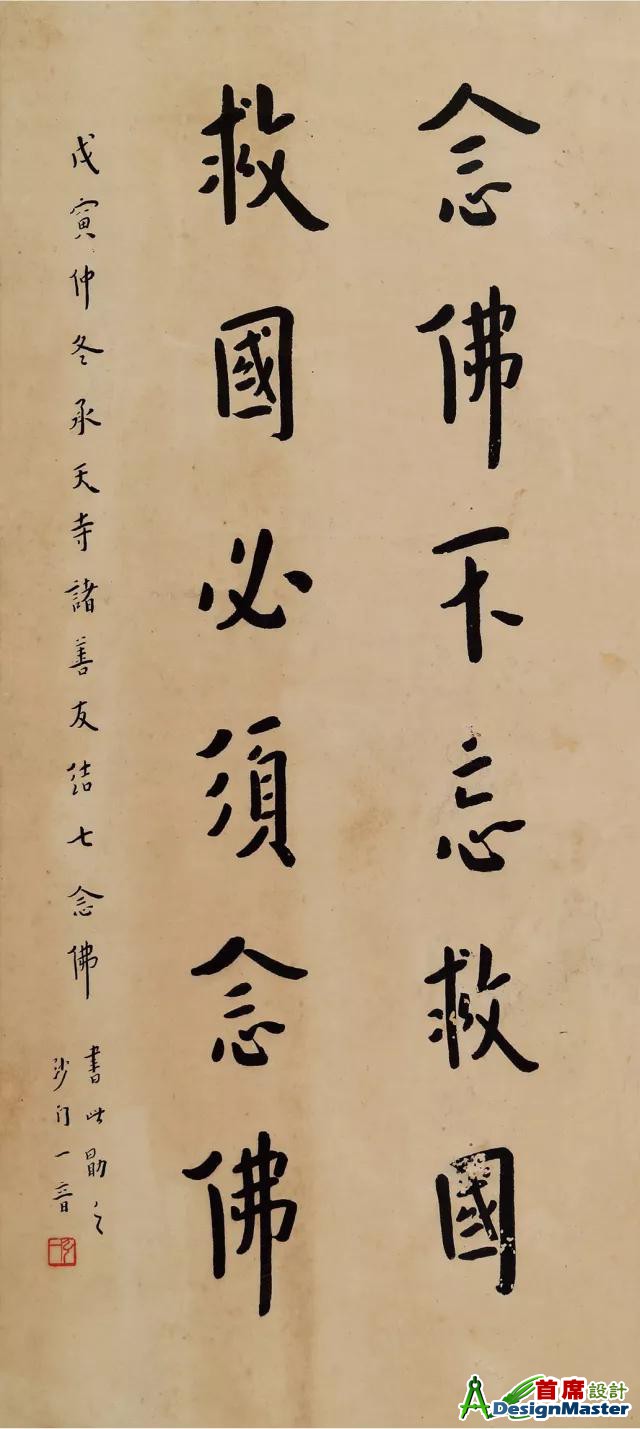 念佛不忘救國
救國必須念佛
戊寅仲冬承天寺諸善友結七念佛
書此勖之
沙門一音
首席設計
DesignMaster